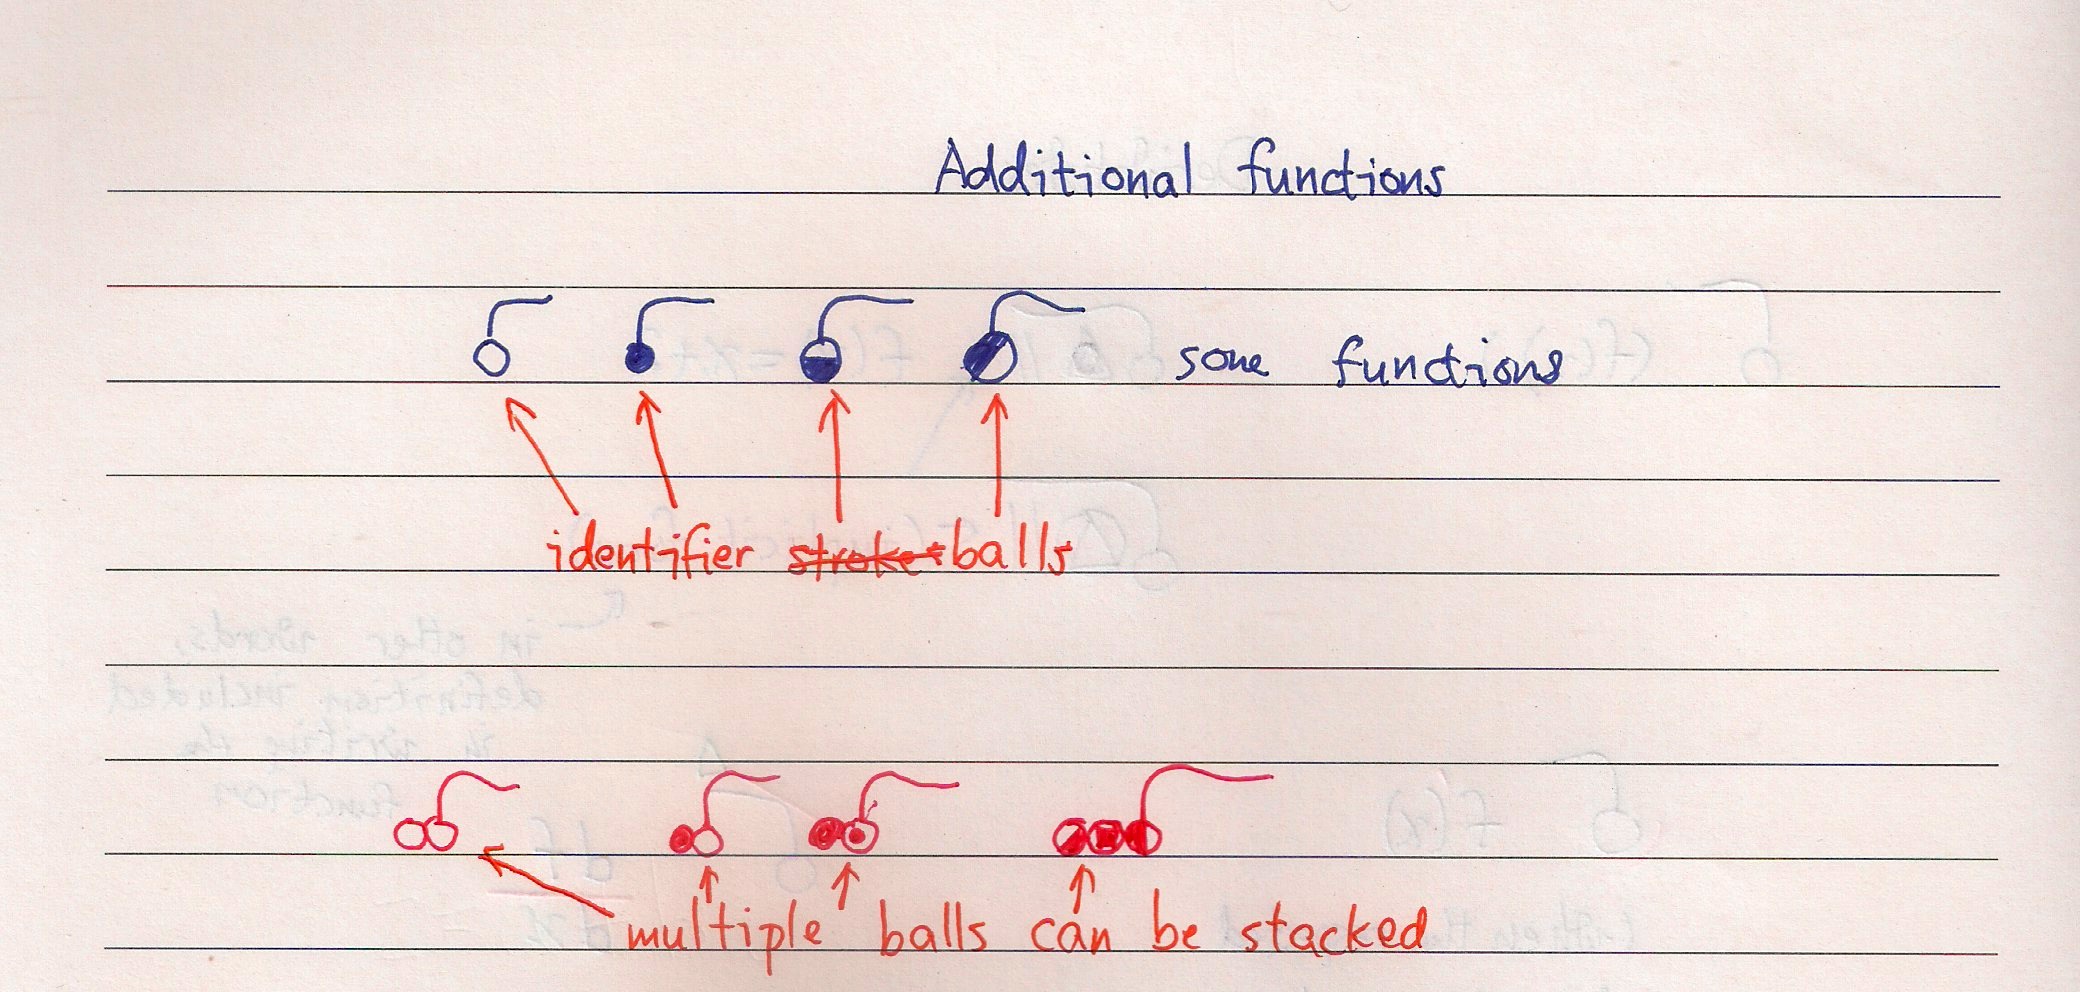 Additional functions
some functions
identifier strokes balls
multiple balls can be stacked